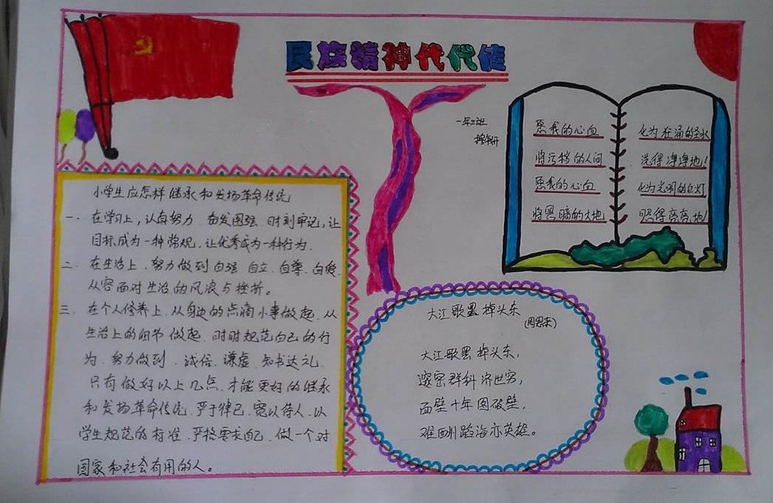 民族精神代代传
一年三班
小学生应怎样继承和发扬革命传统
一、在学习上,认真努力、奋发图强、时刻牢记,让
目标成为一种常规,让优秀成为一种行为。
二、在生活上,努力做到自强、自立、自尊、自爱,
从容面对生活的风浪与挫折。
三、在个人修养上,从身边的点滴小事做起,从
生活上的细节做起,时时规范自己的行
为,努力做到、诚信、谦虚、知书达礼,
只有做好以上几点,才能更好的继承
和发扬革命传统,严于律己,宽以待人,以
学生规范的标准,严格要求自己,做一个对
国家和社会有用的人。
愿我的心血
将污秽的人间
愿我的心血
将黑暗的大地
化为 的圣水
洗得净净地!
化为光明的红灯
照得亮亮地!
大江歌罢掉头东
(周恩来)
大江歌罢掉头东,
邃密群科济世穷,
面壁十年图破壁,
难酬蹈海亦英雄。